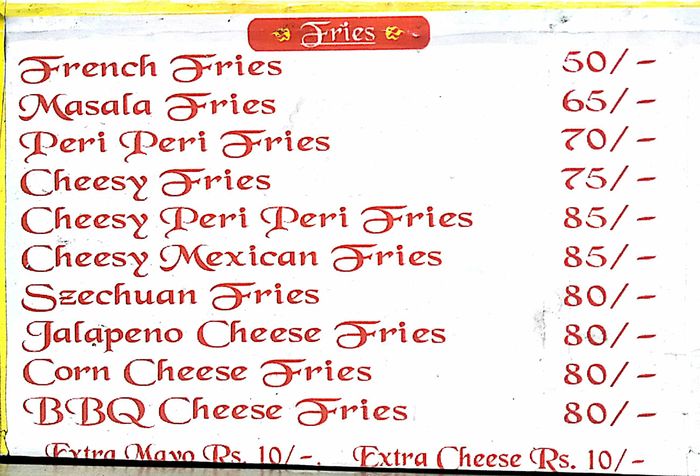 Fries
French Fries 50/-
Masala Fries 65/-
Peri Peri Fries 70/-
Cheesy Fries 75/-
Cheesy Peri Peri Fries 85/-
Cheesy Mexican Fries 85/-
Szechuan Fries 80/-
Jalapeno Cheese Fries 80/-
Corn Cheese Fries 80/-
BBQ Cheese Fries 80/-
Extra Mayo Rs. 10/-. Extra Cheese Rs. 10/-